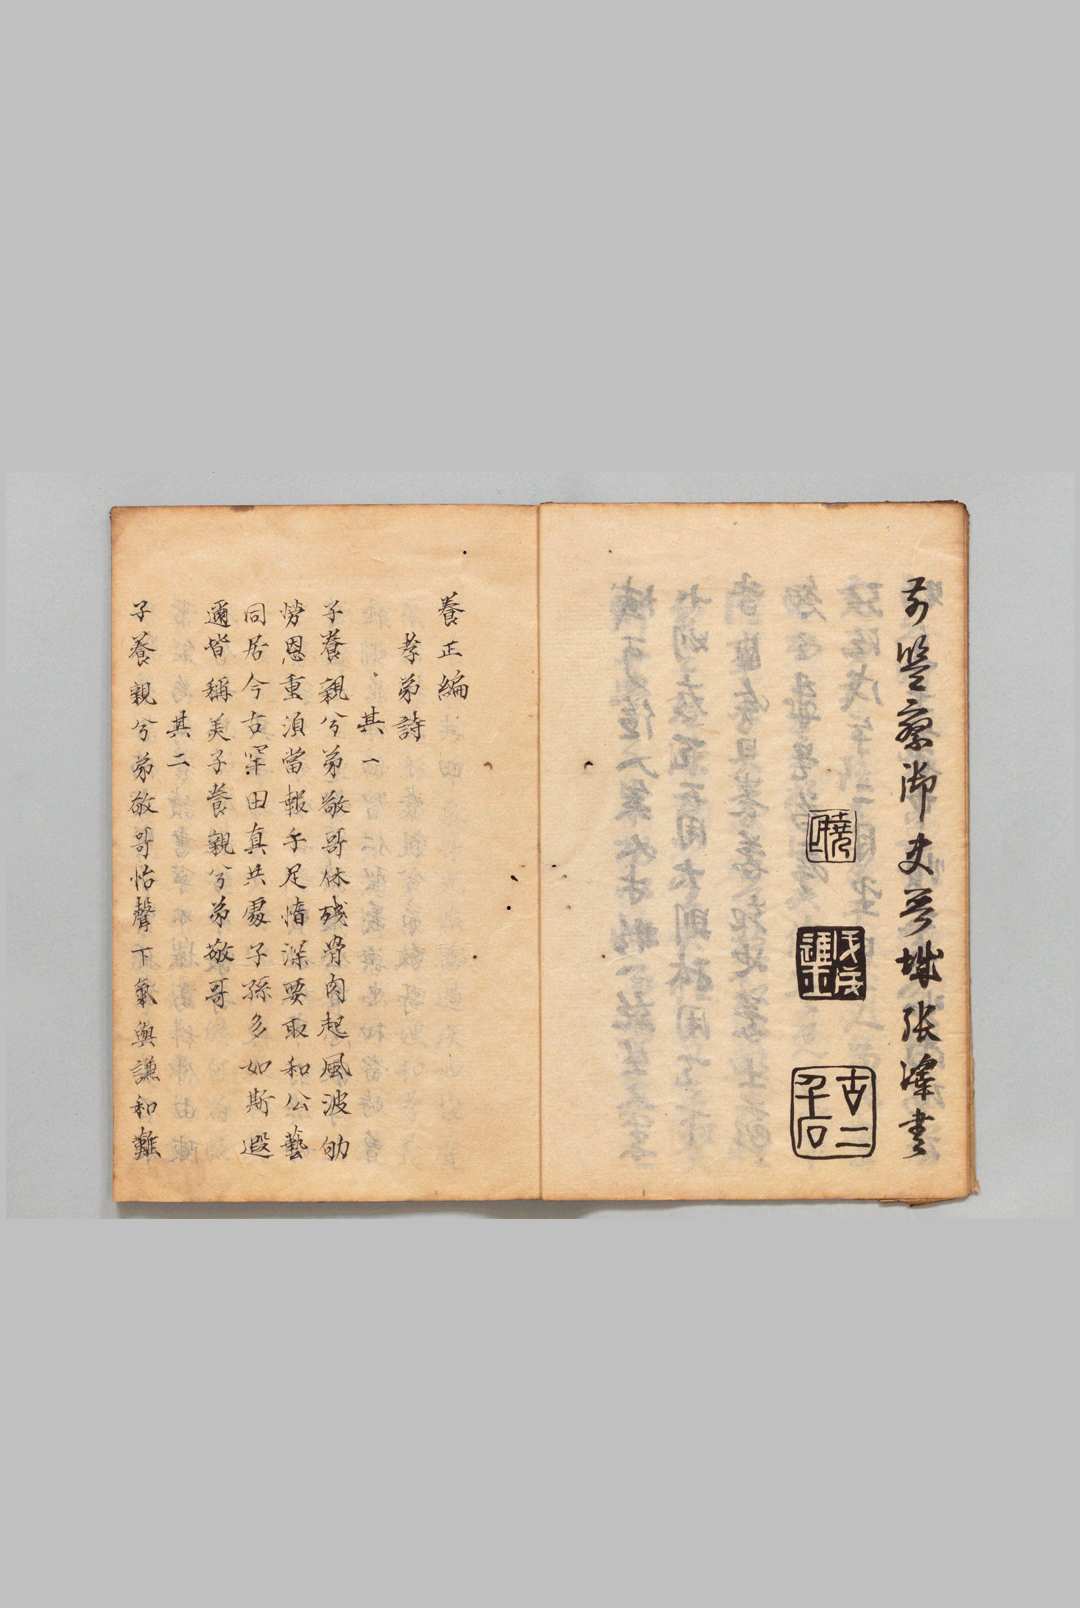 前監察御史芸城张澤書
曉
戊辰進士
古二千石
養正編
孝弟詩
其一
子養親兮弟敬哥休残骨肉起風波劬
勞恩重須當報手足情深要取和公藝
同居今古罕田真共處子孫多如斯遐
邇皆稱美子養親兮弟敬哥
其二
子養親兮弟敬哥怡聲下氣與謙和難